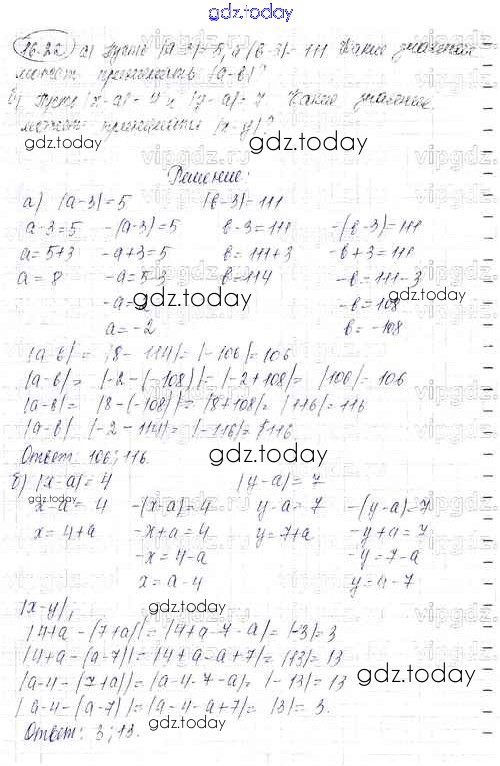 gdz.today
16.22 а) Пусть |а-3|=5, а |в-3|=111 Какие значения
может принимать |а-в|?
б) Пусть |х-а|=4 и |у-а|=7. Какие значение
может принимать |х-у|?
gdz.today gdz.today
Решение:
а) |а-3|=5 |в-3|=111
а-3=5 -(а-3)=5 в-3=111 -(в-3)=111
а=5+3 -а+3=5 в=111+3 -в+3=111
а=8 -а=5-3 в=114 -в=111-3
-а=2 -в=108
gdz.today gdz.today
а=-2 в=-108
|а-в|= |8-114|=|-106|=106
|а-в|= |-2-(-108)|=|-2+108|= |106|=106
|а-в|= |8-(-108)|=|8+108|= |116|=116
|а-в| |-2-114|=|-116|=116
Ответ: 106; 116.
gdz.today
б) |х-а|=4 |у-а|=7
х-а=4 -(х-а)=4 у-а=7 -(у-а)=7
х=4+а -х+а=4 у=7+а -у+а=7
-х=4-а -у=7-а
х=а-4 у=а-7
|х-у|,
gdz.today
|4+а-(7+а)|=|4+а-7-а|=|-3|=3
|4+а-(а-7)|=|4+а-а+7|=|13|=13
|а-4-(7+а)|=|а-4-7-а|=|-13|=13
gdz.today
|а-4-(а-7)|=|а-4-а+7|=|3|=3.
gdz.today
Ответ: 3; 13.